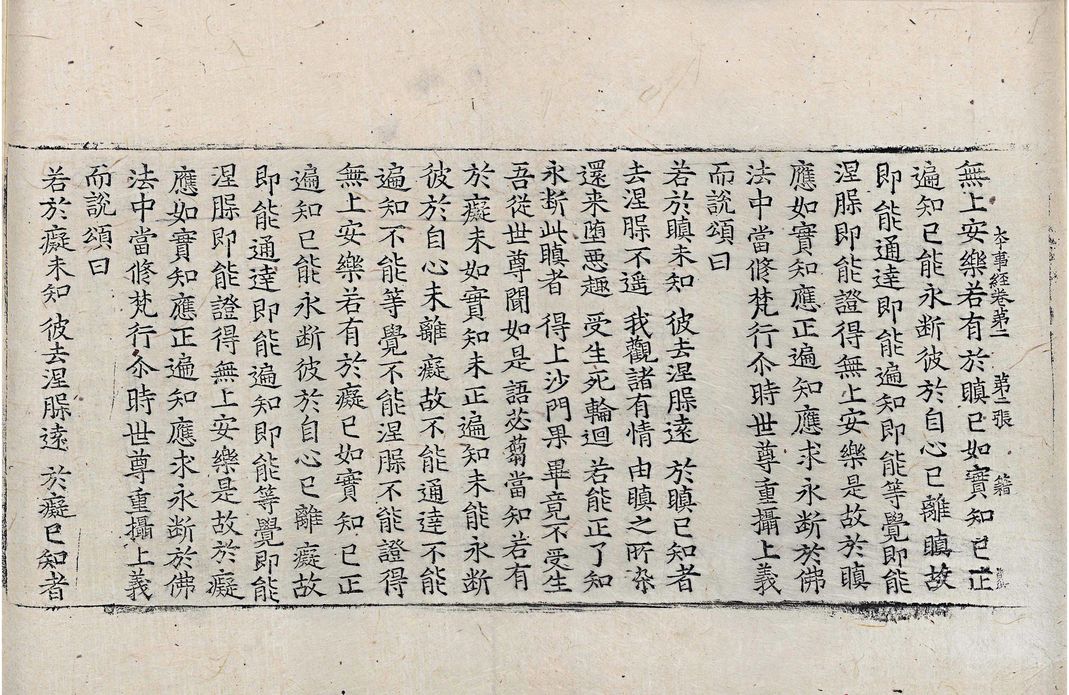 無上安樂若有於瞋已如實知已正
本事經卷第二 第二張 籍
遍知已能永斷彼於自心已離瞋故
即能通達即能遍知即能等覺即能
涅槃即能證得無上安樂是故於瞋
應如實知應正遍知應求永斷於佛
法中當修梵行尒時世尊重攝上義
而說頌曰
若於瞋未知 彼去涅槃遠 於瞋已知者
去涅槃不遥 我觀諸有情 由瞋之所染
還来墮惡趣 受生死輪迴 若能正了知
永斷此瞋者 得上沙門果 畢竟不受生
吾從世尊聞如是語苾蒭當知若有
於癡未如實知未正遍知未能永斷
彼於自心未離癡故不能通達不能
遍知不能等覺不能涅槃不能證得
無上安樂若有於癡已如實知已正
遍知已能永斷彼於自心已離癡故
即能通達即能遍知即能等覺即能
涅槃即能證得無上安樂是故於癡
應如實知應正遍知應求永斷於佛
法中當修梵行尒時世尊重攝上義
而說頌曰
若於癡未知 彼去涅槃遠 於癡已知者